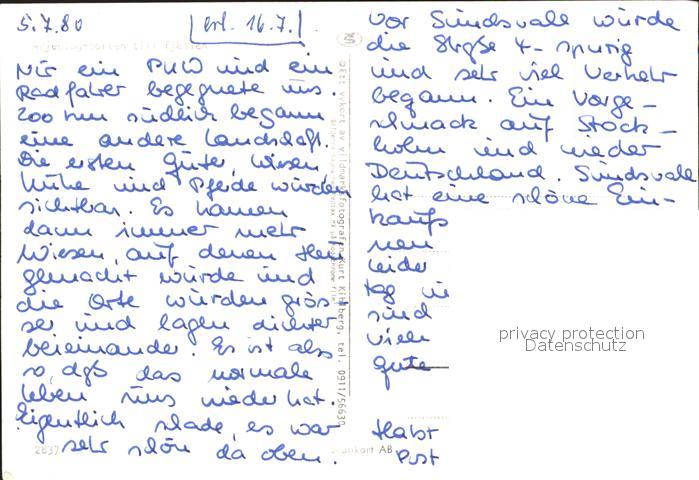 5.7.80 [erl. 16.7.]
Nur ein PKW und ein
Radfahrer begegnete uns.
200 km südlich begann
eine andere Landschaft.
Die ersten Güter, Wiesen
Kühe und Pferde würden
sichtbar. Es kamen
dann immer mehr
Wiesen, auf denen Heu
gemacht würde und
die Orte würden grös-
ser und lagen dichter
beieinander. Es ist als
so, daß das normale
Leben uns wieder hat.
Eigentlich schade, es war
sehr schön da oben.
2837
vor Sundsvall würde
die Straße 4-spurig
und sehr viel Verkehr
begann. Ein Vorge-
schmack auf Stock-
holm und wieder
Deutschland. Sundsvall
hat eine schöne Ein-
kaufs
nen
leider
tag in
sind
viele
Gute
Habt
Post
privacy protection
Datenschutz